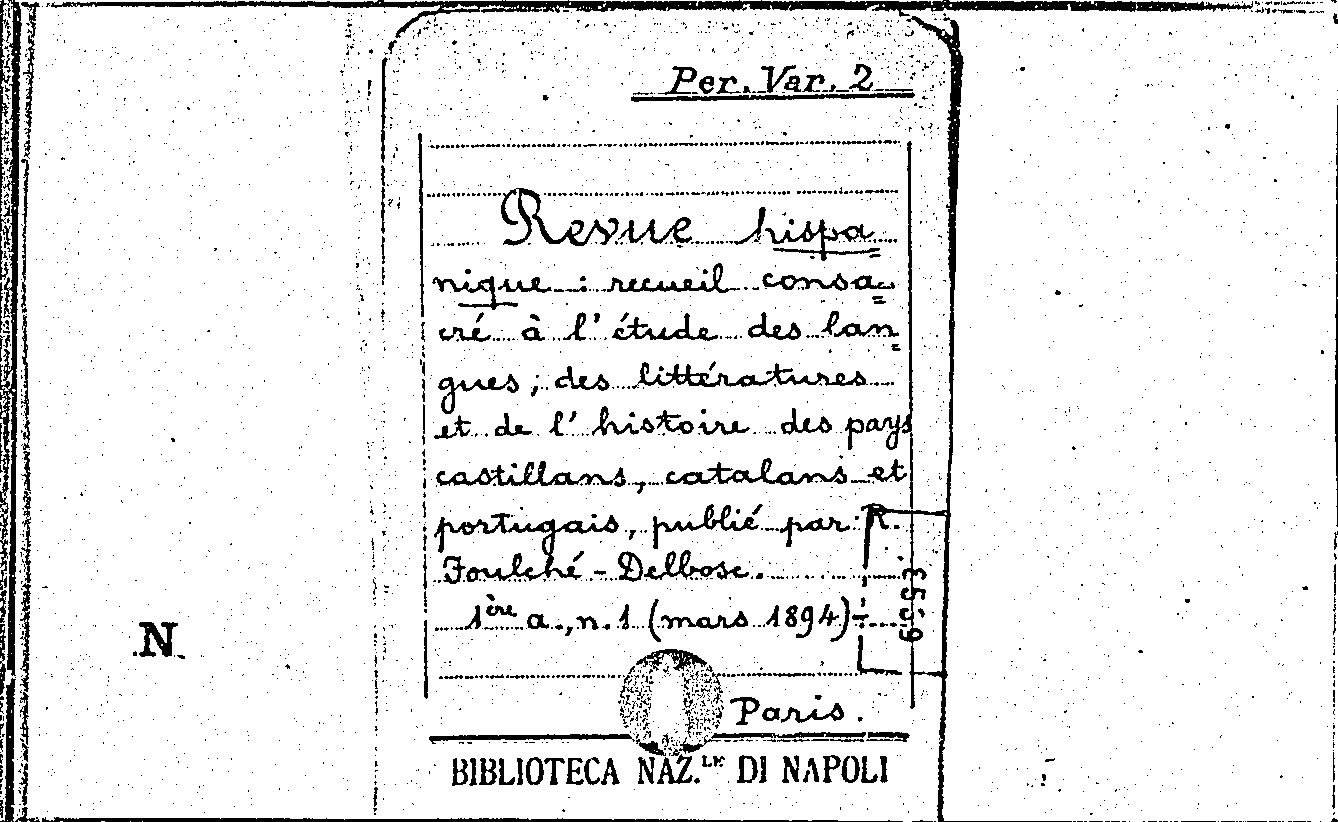 Per. Var. 2
Revue hispa=
nique : recueil consa=
cré à l'étude des lan=
gues, des littératures
et de l'histoire des pays
castillans, catalans et
portugais, publié par R.
Foulché-Delbosc.
1ère a., n. 1 (mars 1894)÷
Paris.
BIBLIOTECA NAZ.LE DI NAPOLI
N